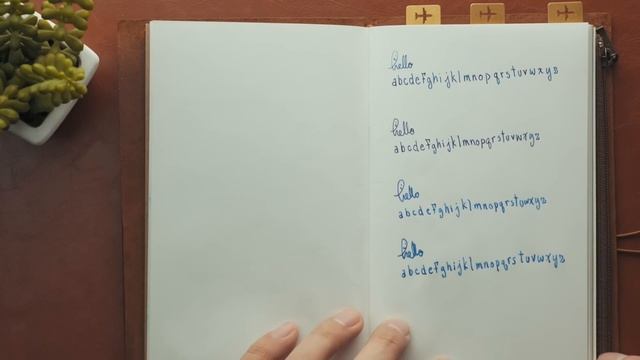 hello
abcdefghijklmnopqrstuvwxyz
hello
abcdefghijklmnopqrstuvwxyz
hello
abcdefghijklmnopqrstuvwxyz
hello
abcdefghijklmnopqrstuvwxyz